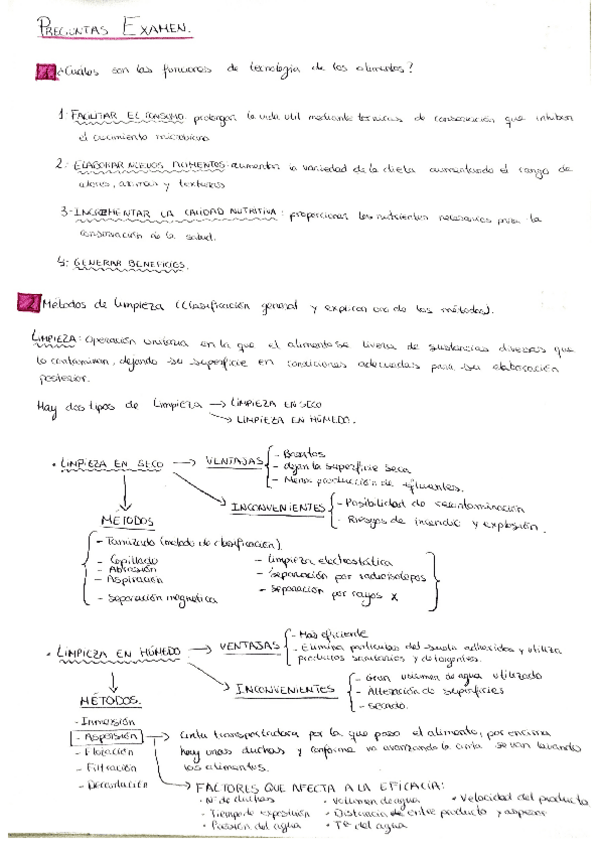 PREGUNTAS EXAMEN.
1. ¿Cuáles son las funciones de tecnología de los alimentos?
1: FACILITAR EL CONSUMO: prolongar la vida útil mediante técnicas de conservación que inhiben
el crecimiento microbiano
2: ELABORAR NUEVOS ALIMENTOS: aumentar la variedad de la dieta aumentando el rango de
sabores, aromas y texturas
3- INCREMENTAR LA CALIDAD NUTRITIVA: proporcionar los nutrientes necesarios para la
conservación de la salud.
4: GENERAR BENEFICIOS.
2. Métodos de limpieza (clasificación general y explica uno de los métodos).
LIMPIEZA: Operación unitaria en la que el alimento se libera de sustancias diversas que
lo contaminan, dejando su superficie en condiciones adecuadas para su elaboración
posterior.
Hay dos tipos de limpieza → LIMPIEZA EN SECO
→ LIMPIEZA EN HÚMEDO.
• LIMPIEZA EN SECO → VENTAJAS
- Baratos
- dejan la superficie seca
- Menos producción de efluentes.
INCONVENIENTES
- Posibilidad de recontaminación
- Riesgos de incendio y explosión.
MÉTODOS
- Tamizado (método de clasificación)
- Cepillado
- Abrasión
- Aspiración
- Separación magnética
- Limpieza electrostática
- Separación por radioisótopos
- Separación por rayos X
• LIMPIEZA EN HÚMEDO → VENTAJAS
- Más eficiente
- Elimina partículas del suelo adheridas y utiliza
productos sanitarios y detergentes.
INCONVENIENTES
- Gran volumen de agua utilizado
- Alteración de superficies
- Secado.
MÉTODOS.
- Inmersión
- Aspersión → Cinta transportadora por la que pasa el alimento, por encima
hay unas duchas y conforme va avanzando la cinta se van lavando
los alimentos.
- Flotación
- Filtración
- Decantación
→ FACTORES QUE AFECTA A LA EFICACIA:
• Nº de duchas • Volumen de agua • Velocidad del producto
• Tiempo de exposición • Distancia de entre producto y aspersor
• Presión del agua • Tª del agua